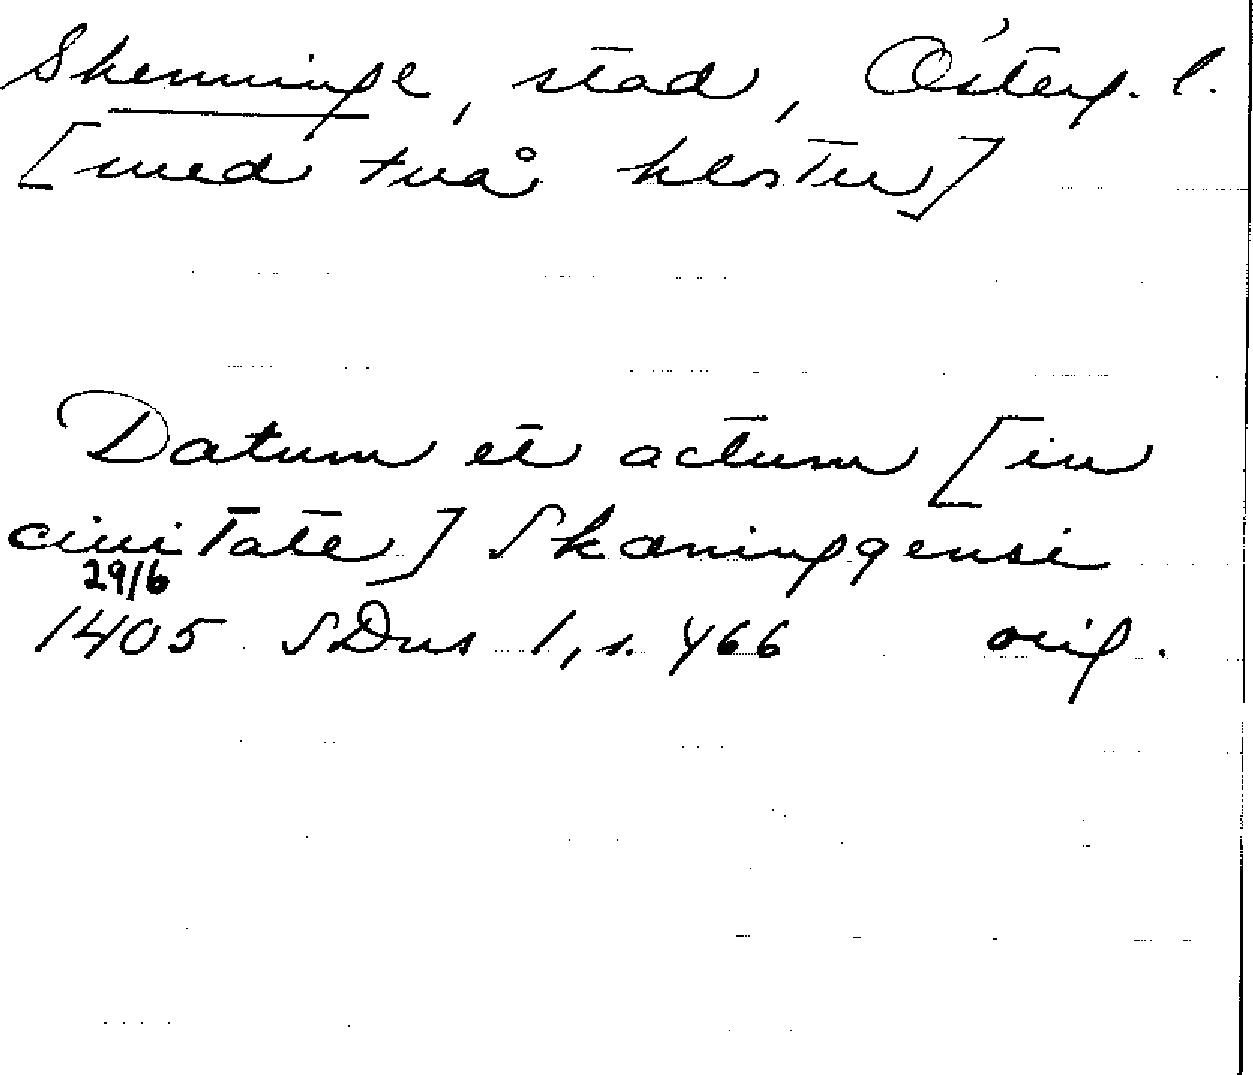 Skenninge, stad, Österg. l.
[med två kloster]
Datum et actum [in
ciuitate] Skæninggensi
29/6
1405 SDns 1, s. 466 orig.